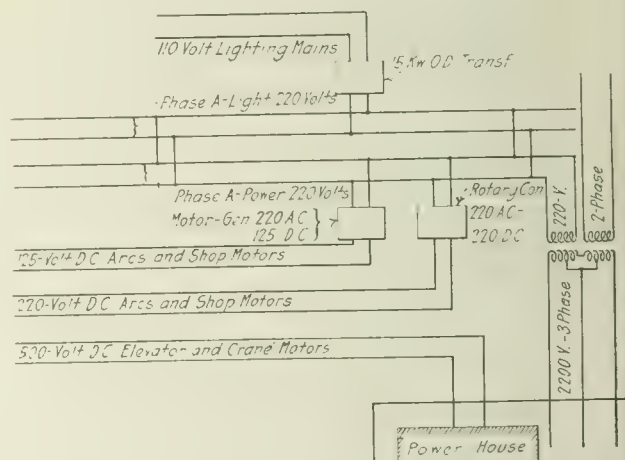 110 Volt Lighting Mains
15 Kw OD Transf
Phase A-Light 220 Volts
Phase A-Power 220 Volts
Motor-Gen 220 AC
125 DC
Rotary Con
220 AC-
220 DC
220-V.
2-Phase
125-Volt DC Arcs and Shop Motors
220-Volt DC Arcs and Shop Motors
2200 V.-3 Phase
500-Volt DC Elevator and Crane Motors
Power House